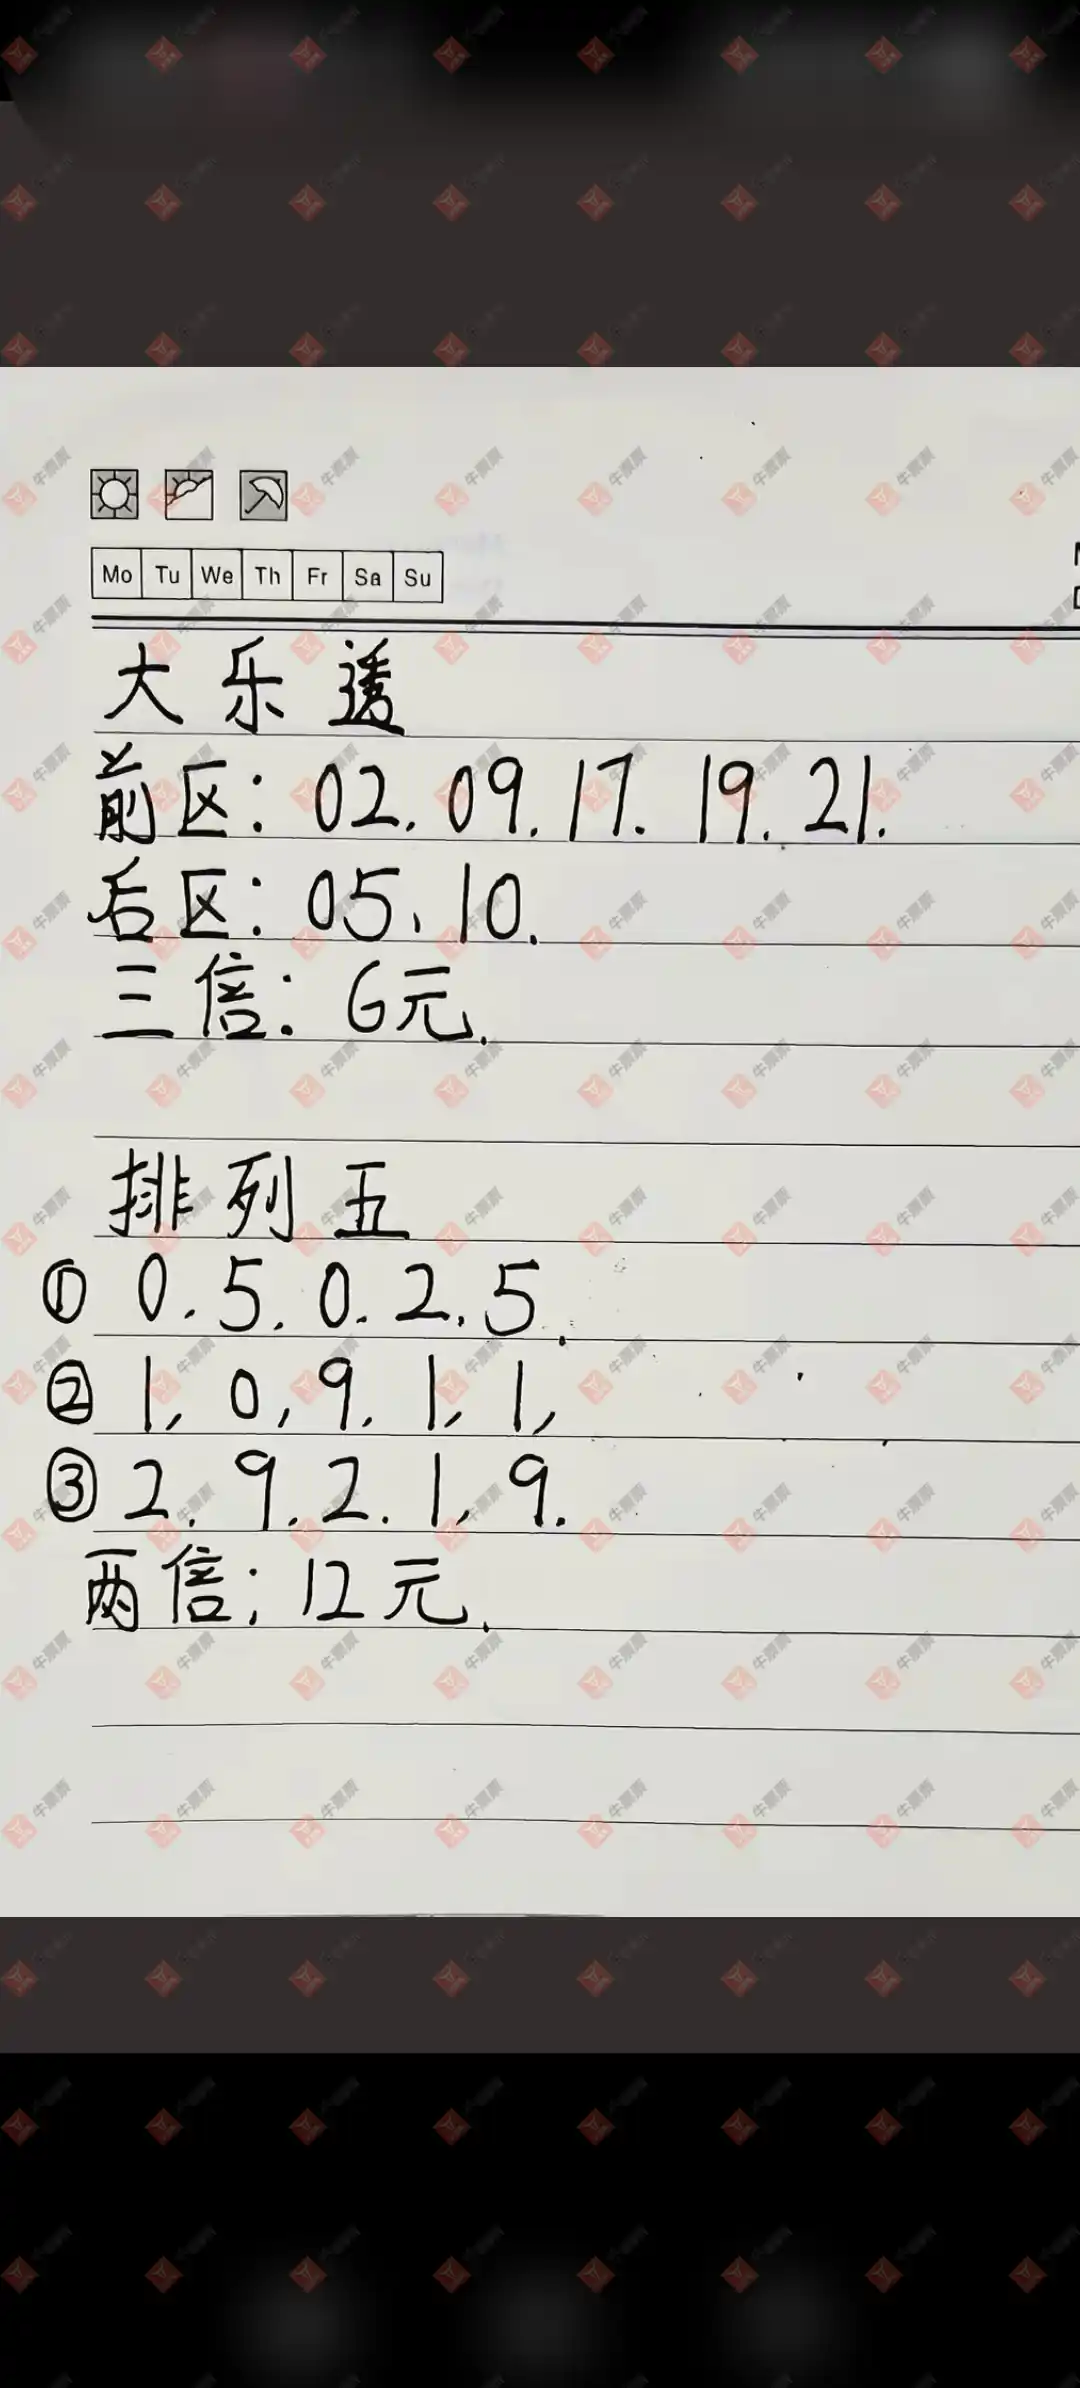 Mo Tu We Th Fr Sa Su
大乐透
前区: 02. 09. 17. 19. 21.
后区: 05、10.
三倍: 6元.
排列五
① 0. 5. 0. 2. 5.
② 1, 0, 9. 1, 1,
③ 2. 9. 2. 1, 9.
两倍; 12元.
牛票票